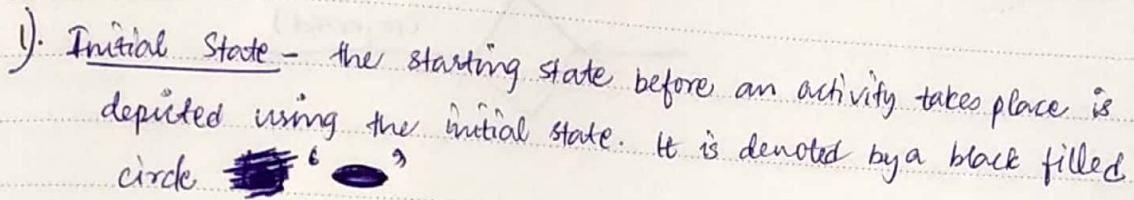 1). Initial State - the starting state before an activity takes place is
depicted using the initial state. It is denoted by a black filled
circle ' '